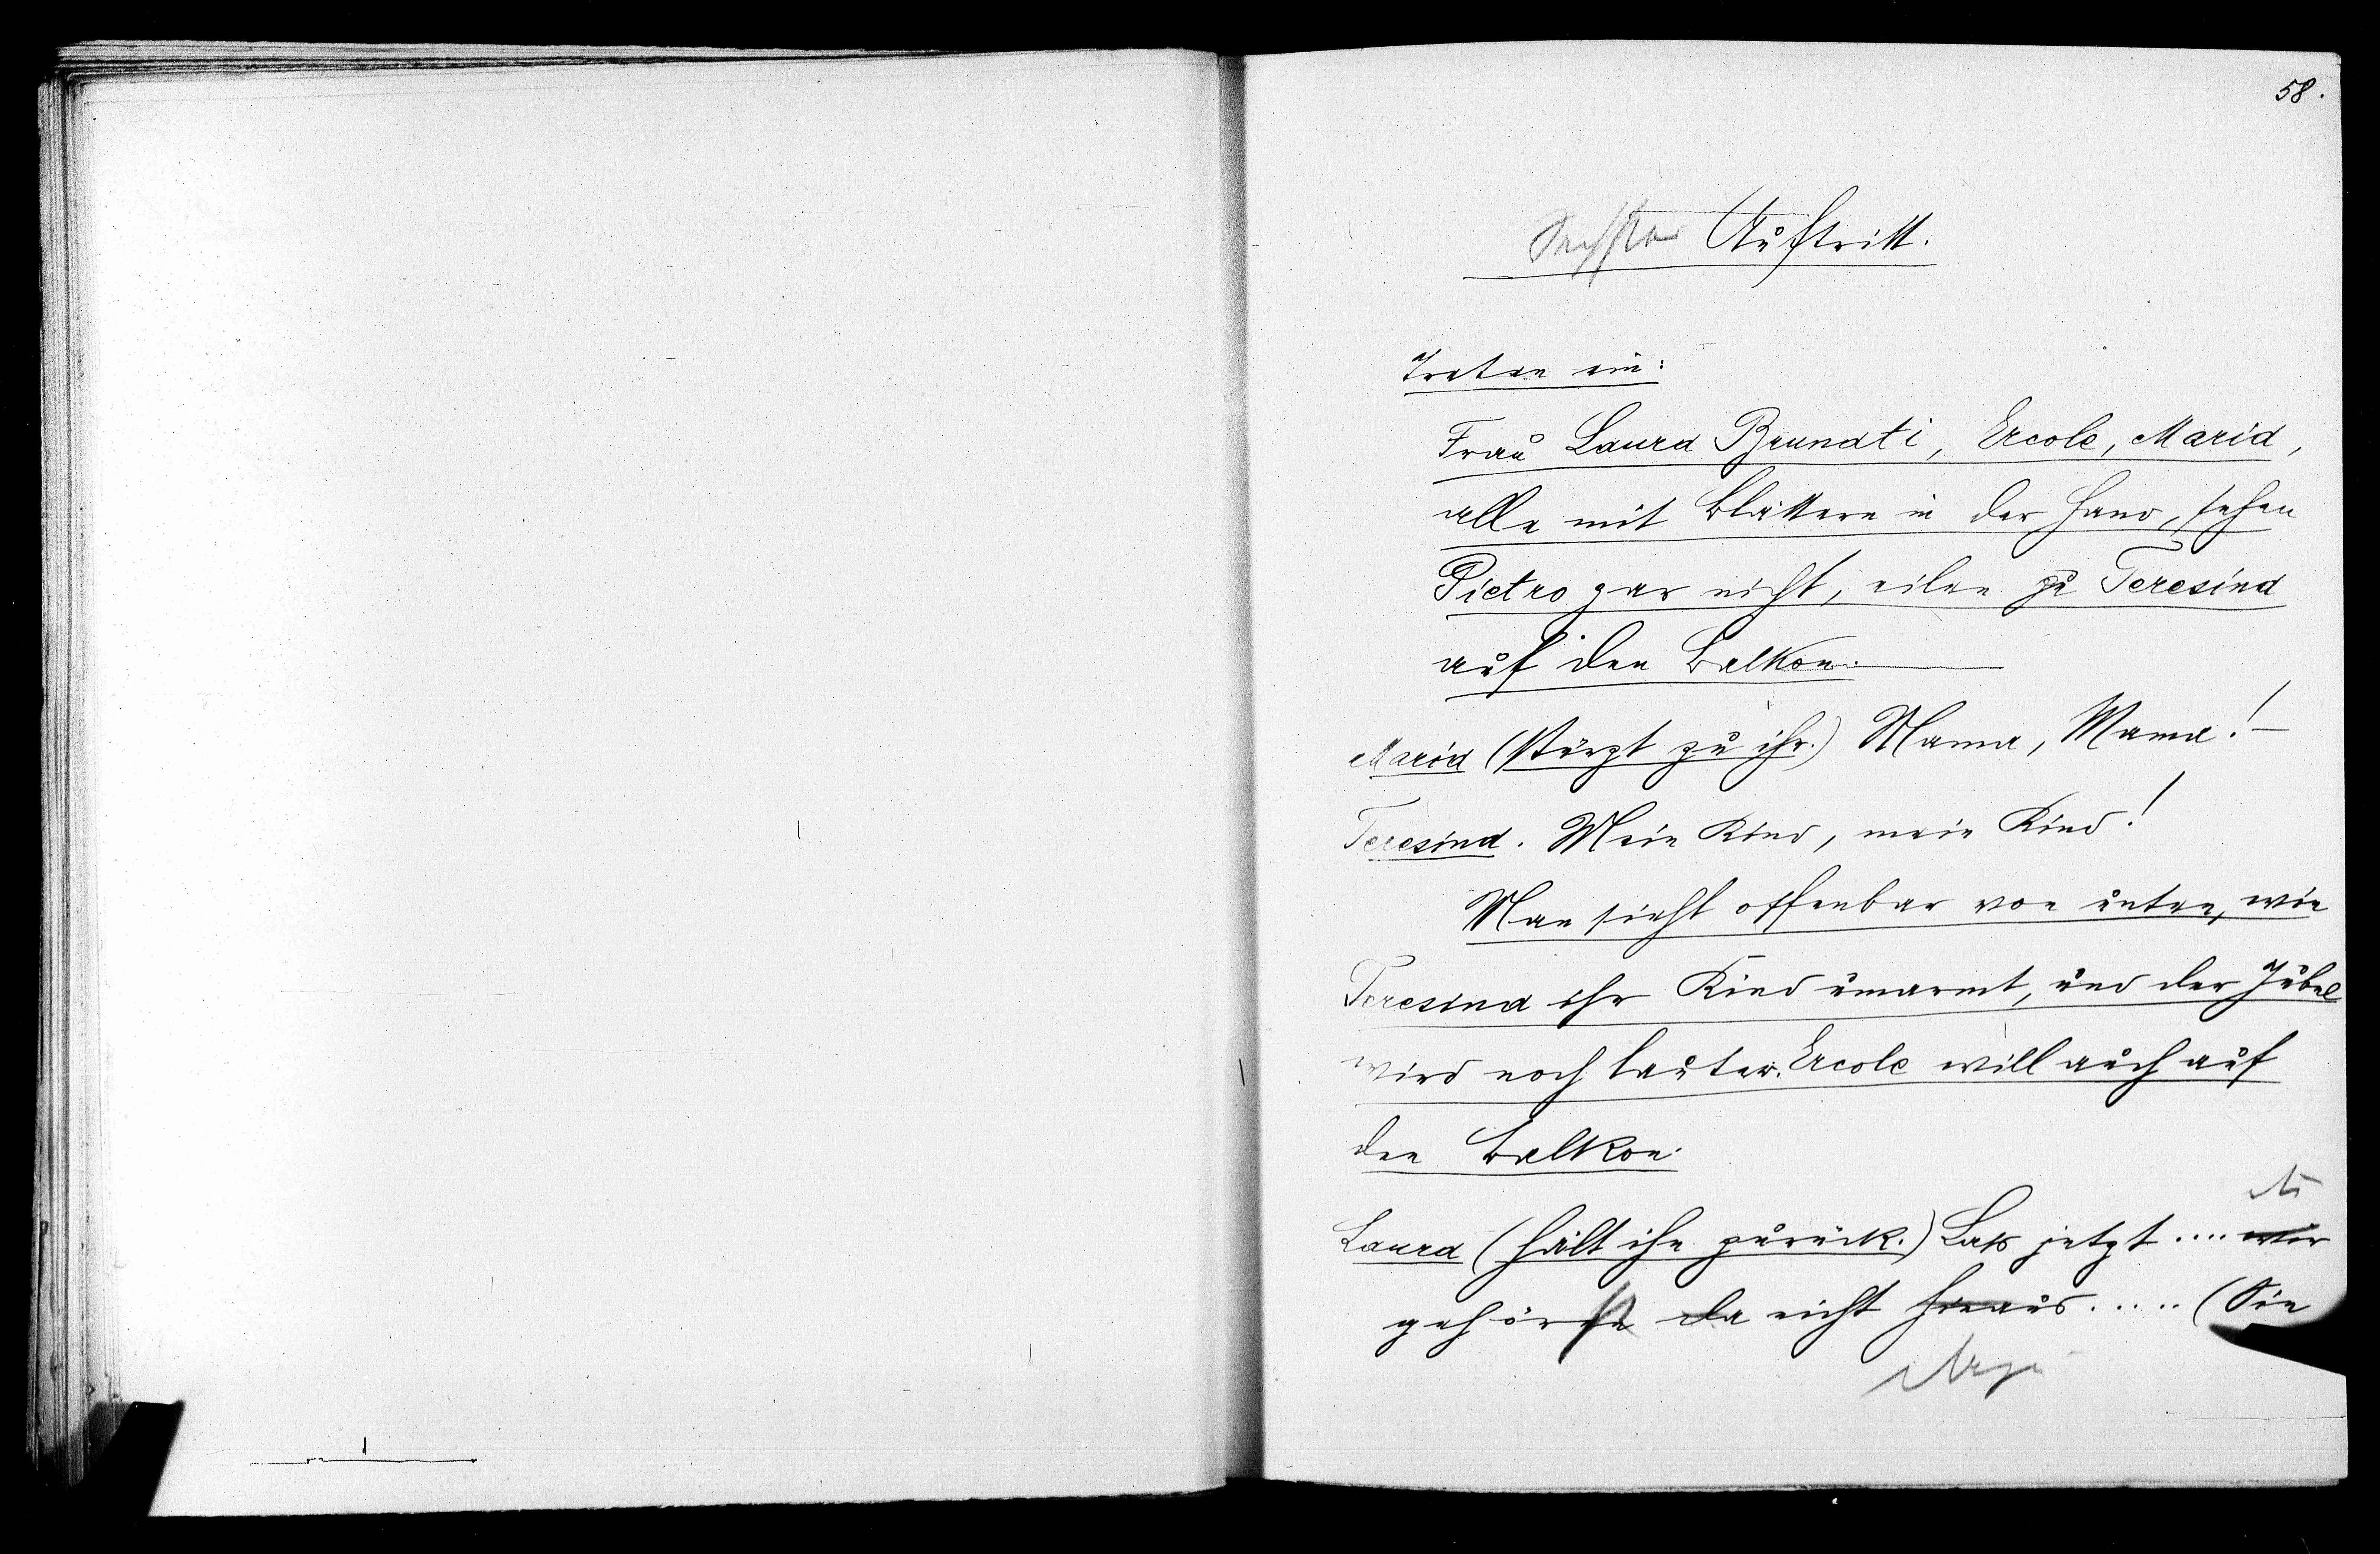 58.
Sechster Auftritt.
Treten ein:
Frau Laura Brunati, Ercole, Maria,
alle mit Blättern in der Hand, sehen
Pietro gar nicht, eilen zu Teresina
auf den Balkon.
Maria (stürzt zu ihr.) Mama, Mama! –
Teresina. Mein Kind, mein Kind!
Man sieht offenbar von unten, wie
Teresina ihr Kind umarmt, und der Jubel
wird noch lauter. Ercole will auch auf
den Balkon.
du
Laura (hält ihn zurück.) Lass jetzt .... wir
gehörst da nicht hinaus ..... (Sie